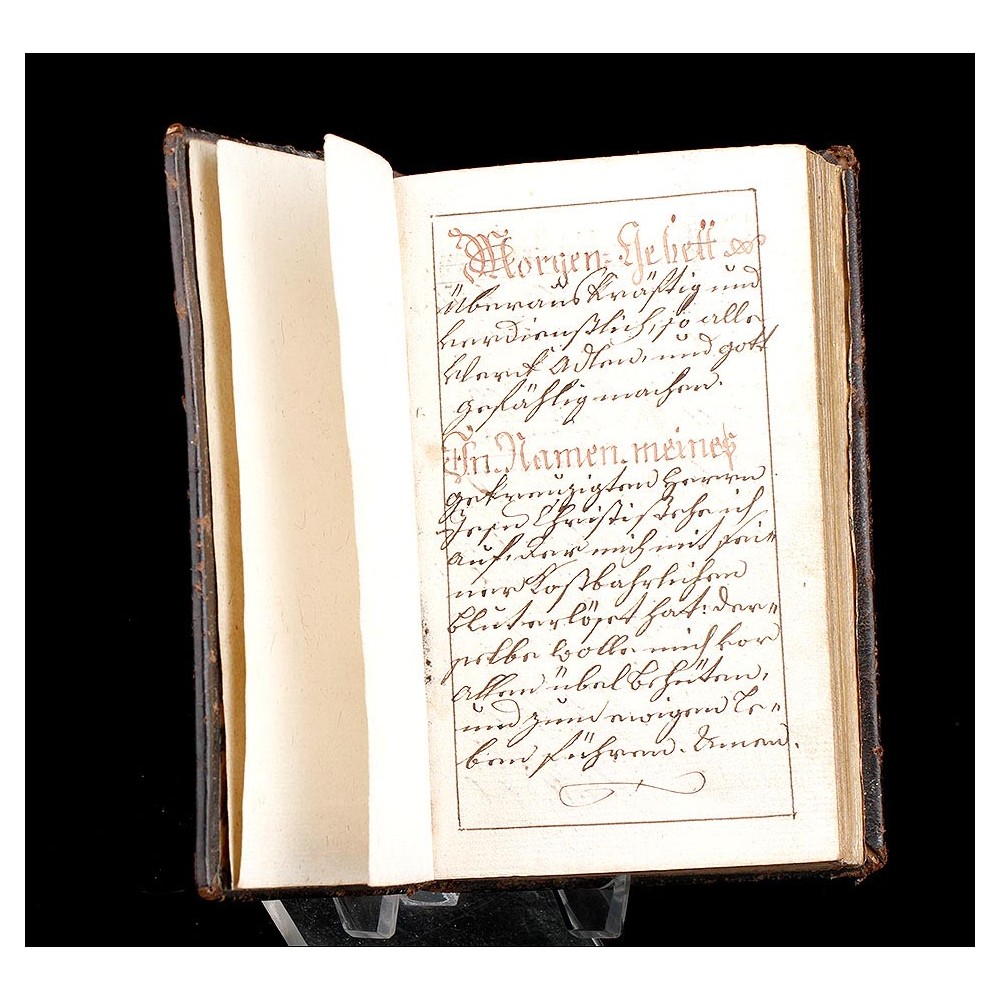 Morgen-Gebett
Überaus Kräfftig und
verdienstlich, so alle
Werck Adlen, und gott
gefählig machen.
In Namen meines
gekreuzigten Herrn
Jesu Christi stehe ich
auf. der mich mit sei-
ner Kostbahrlichen
bluterlöset hat: der-
selbe wolle mich vor
allem übel behüten,
und zum ewigen Le-
ben führen. Amen.